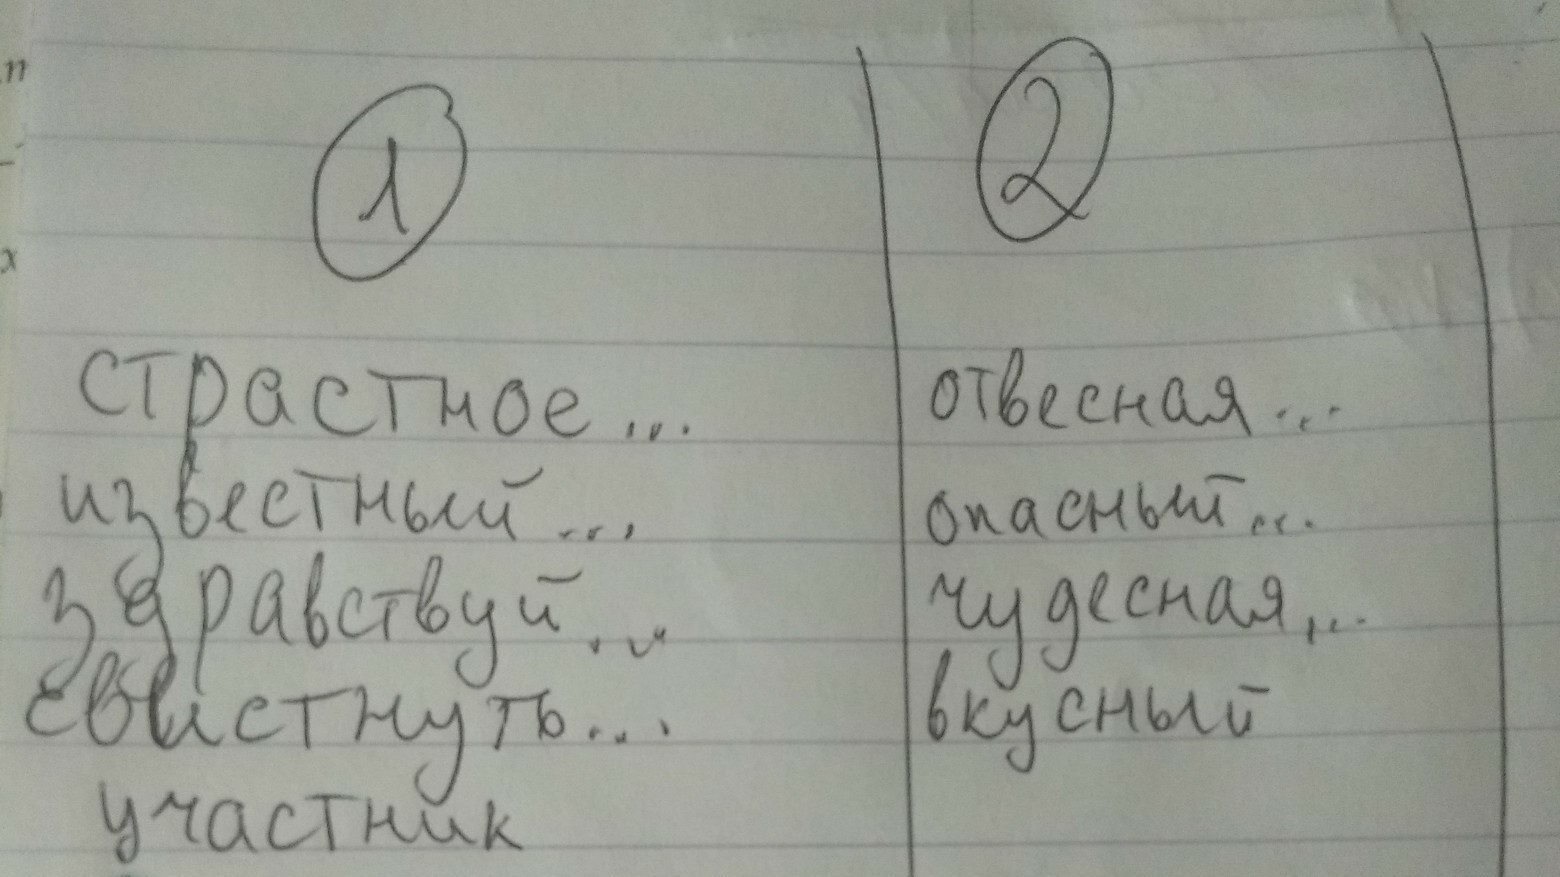 1
страстное...
известный...
здравствуй...
свистнуть...
участник
2
отвесная...
опасный...
чудесная...
вкусный